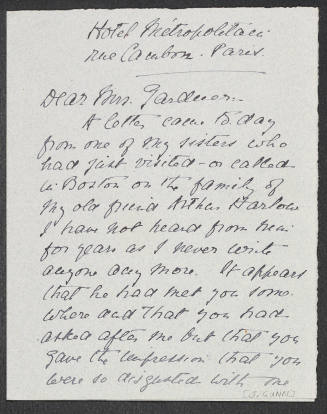 Hotel Métropolitain
rue Cambon. Paris.
Dear Mrs. Gardner.
A letter came to day
from one of my sisters who
had just visited - or called
in Boston on the family of
my old friend Arthur Harlow
I have not heard from him
for years as I never write
anyone any more. It appears
that he had met you some.
where and that you had
asked after me but that you
gave the impression that you
were so disgusted with me
[J. GUNN]